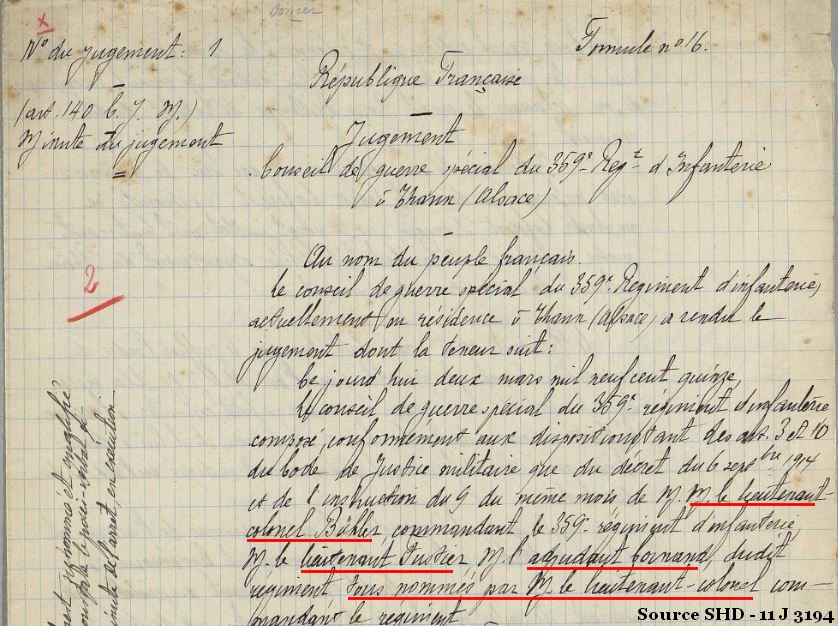 x
N° du jugement : 1
Formule n° 16.
République Française
(art. 140 C. J. M.)
Minute du jugement
Jugement
Conseil de guerre spécial du 359e Regt d'Infanterie
à Thann (Alsace)
2
Au nom du peuple français.
Le conseil de guerre spécial du 359e Regiment d'infanterie,
actuellement en résidence à Thann (Alsace) a rendu le
jugement dont la teneur suit :
Ce jourd'hui deux mars mil neuf cent quinze,
le conseil de guerre spécial du 359e régiment d'infanterie
composé, conformément aux dispositions tant des art. 3 et 10
du Code de Justice militaire que du décret du 6 septbre 1914
et de l'instruction du 9 du même mois de M. M. le lieutenant-
colonel commandant le 359e régiment d'infanterie,
M. le lieutenant M. l'adjudant dudit
régiment tous nommés par M. le lieutenant-colonel com-
mandant le régiment
minute de l'arrêt, en exécution
Source SHD - 11 J 3194